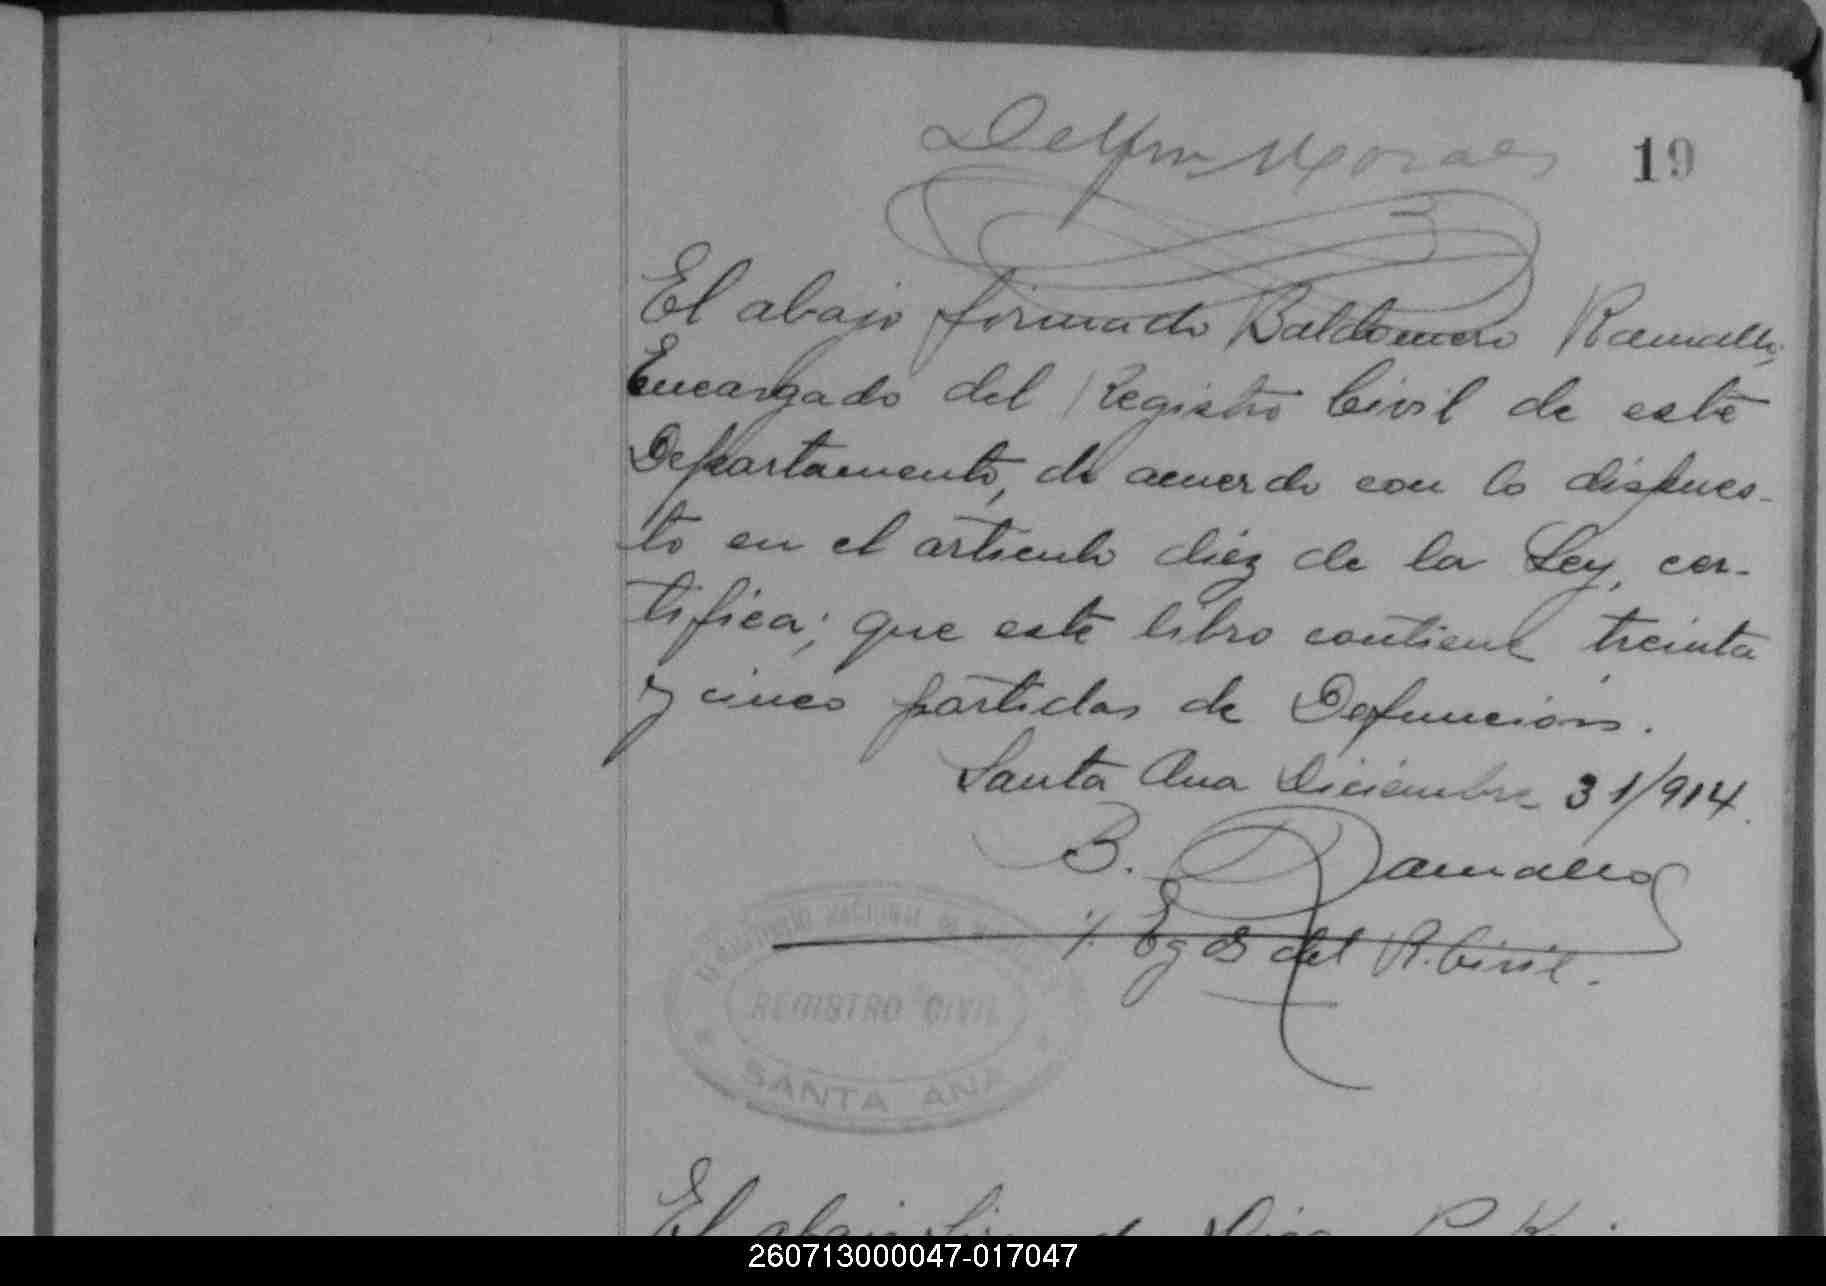 Delfin Morales
19
El abajo firmado Baldomero Ramallo,
Encargado del Registro Civil de este
Departamento, de acuerdo con lo dispues-
to en el articulo diéz de la Ley, cer-
tifica; que este libro contiene treinta
y cinco partidas de Defunción.
Santa Ana Diciembre 31/914.
B. Ramallo
Egdo del R. Civil.
REGISTRO CIVIL
SANTA ANA
El abajo
260713000047-017047